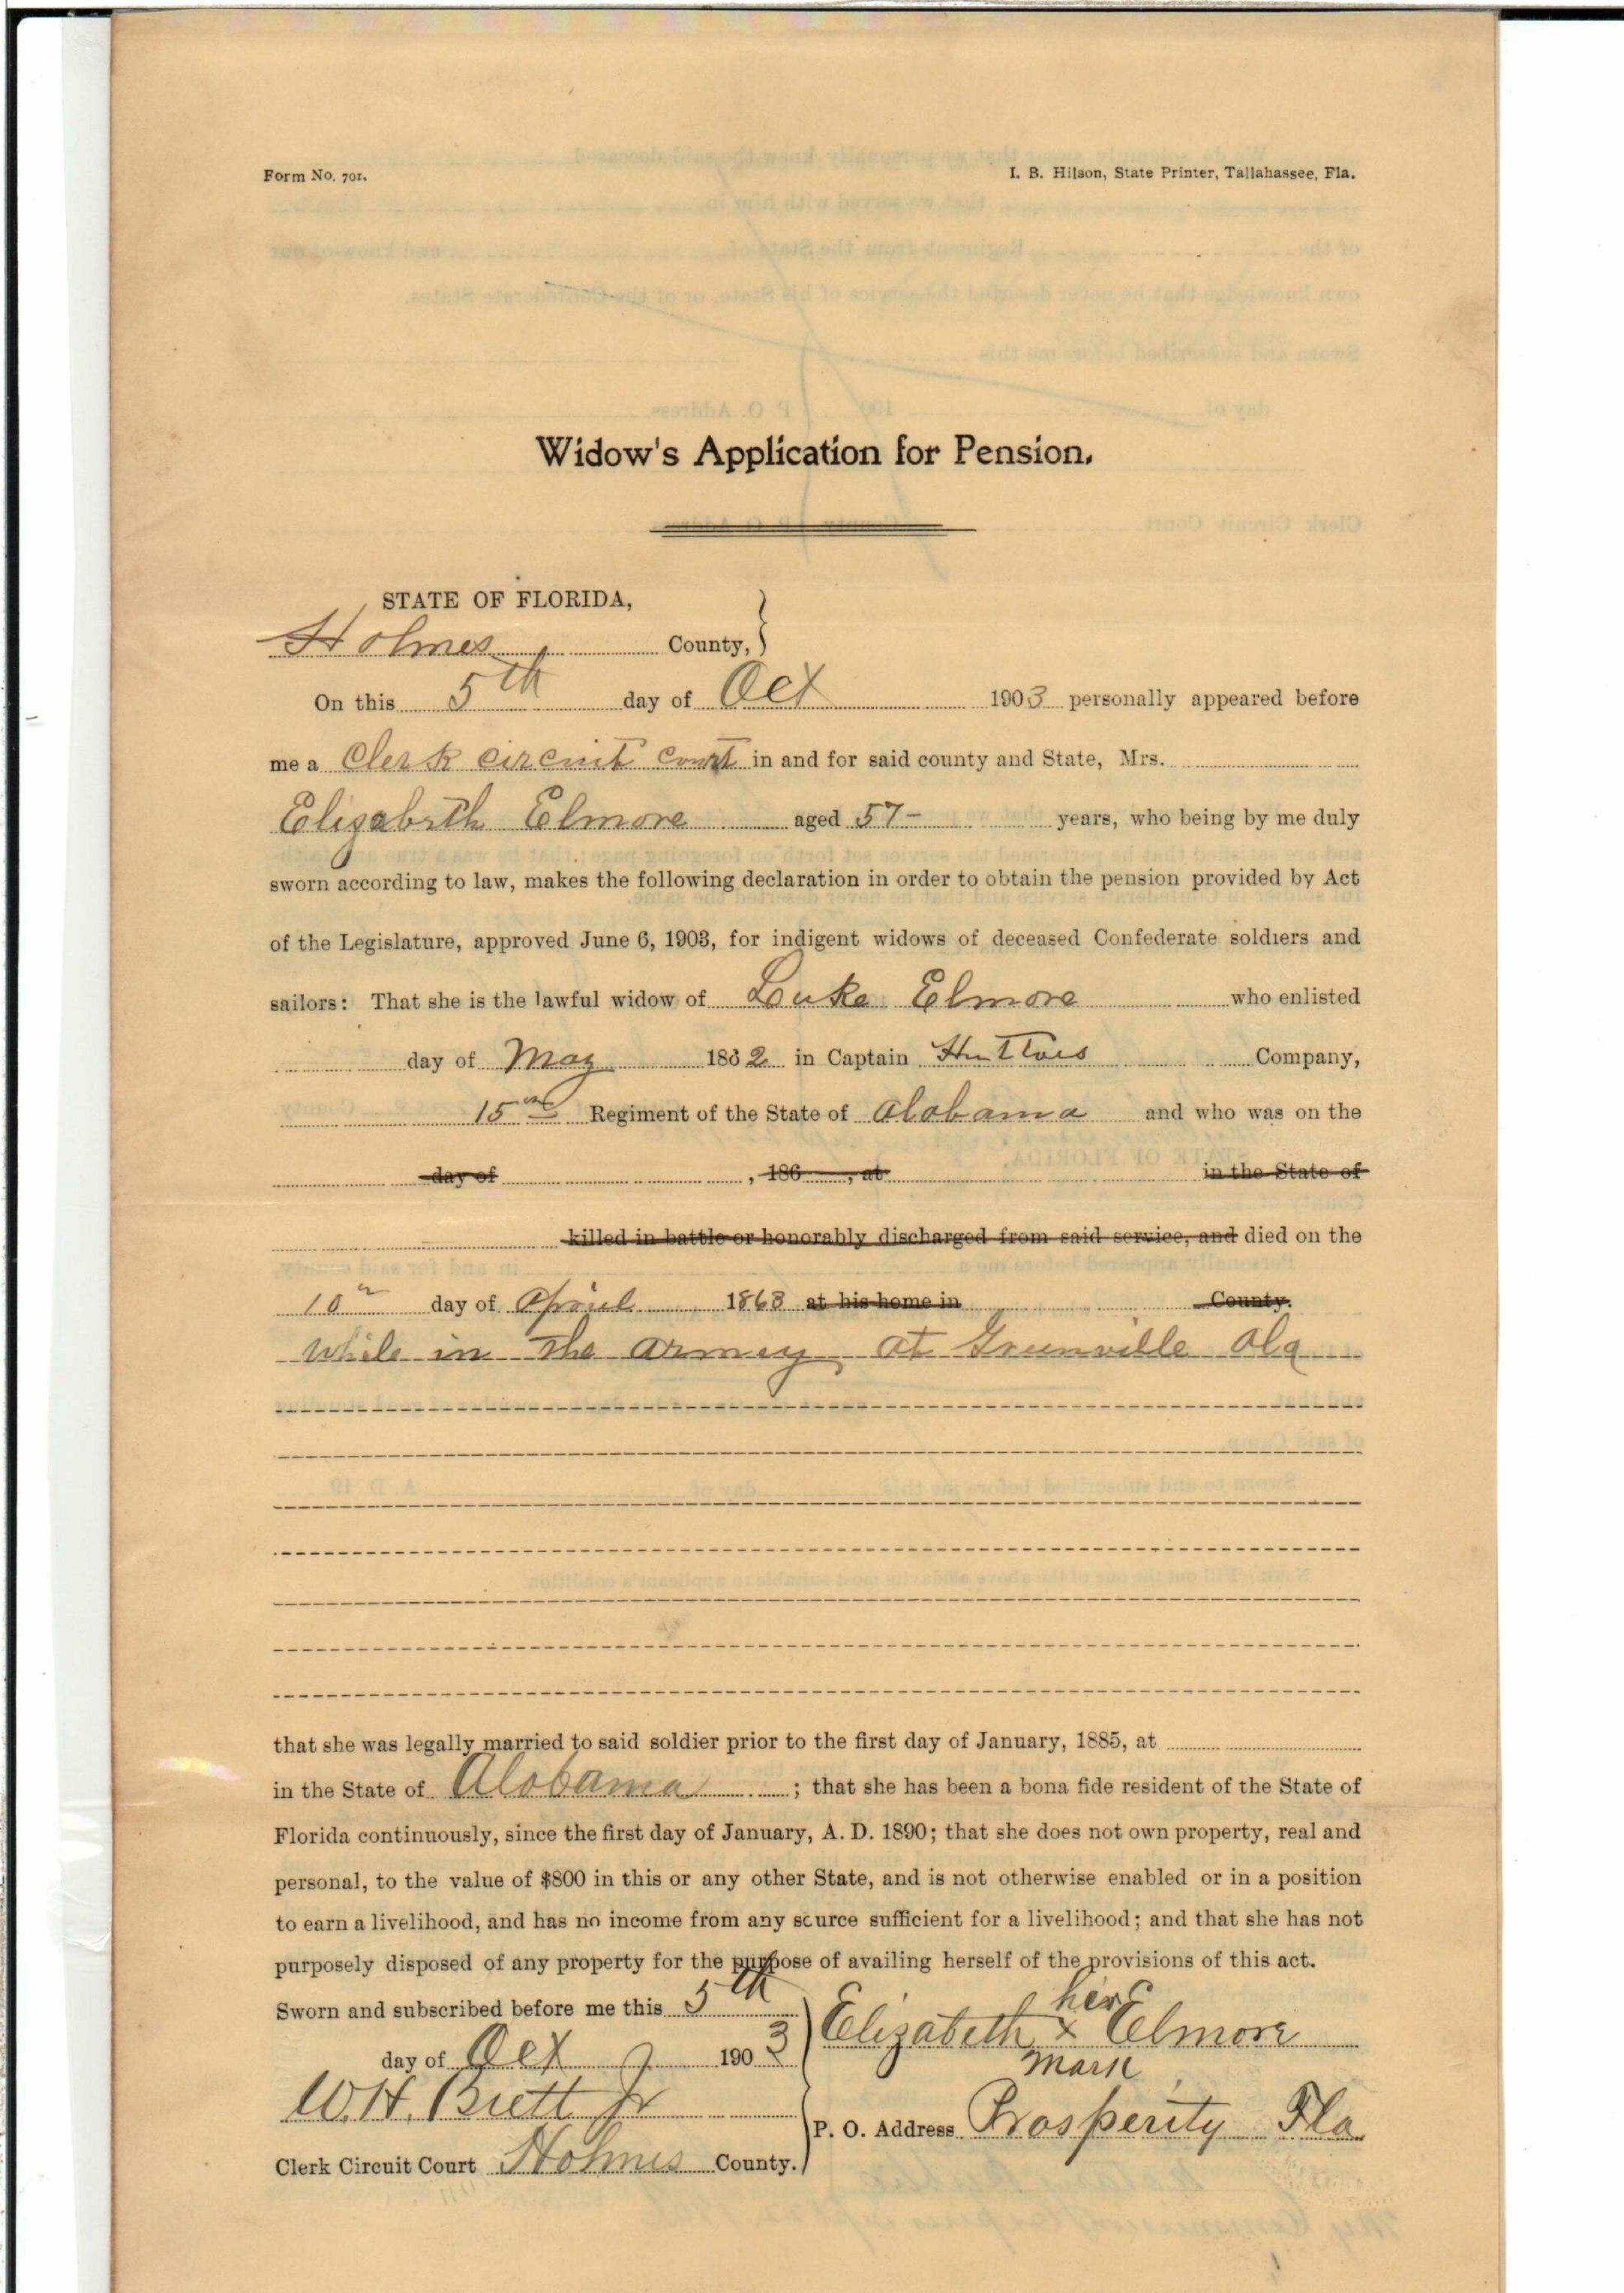 Form No. 701.
I. B. Hilson, State Printer, Tallahassee, Fla.
Widow's Application for Pension.
STATE OF FLORIDA,
Holmes County, }
On this 5th day of Oct 1903 personally appeared before
me a Clerk circuit court in and for said county and State, Mrs.
Elizabeth Elmore aged 57- years, who being by me duly
sworn according to law, makes the following declaration in order to obtain the pension provided by Act
of the Legislature, approved June 6, 1903, for indigent widows of deceased Confederate soldiers and
sailors: That she is the lawful widow of Luke Elmore who enlisted
day of May 1862 in Captain Company,
15 Regiment of the State of Alabama and who was on the
day of , 186 , at in the State of
killed in battle or honorably discharged from said service, and died on the
10 day of April 1863 at his home in County.
while in the armey at Greenville Ala
that she was legally married to said soldier prior to the first day of January, 1885, at
in the State of Alabama ; that she has been a bona fide resident of the State of
Florida continuously, since the first day of January, A. D. 1890; that she does not own property, real and
personal, to the value of $800 in this or any other State, and is not otherwise enabled or in a position
to earn a livelihood, and has no income from any source sufficient for a livelihood; and that she has not
purposely disposed of any property for the purpose of availing herself of the provisions of this act.
Sworn and subscribed before me this 5th
day of Oct 1903
W.H. Brett Jr
Clerk Circuit Court Holmes County.
her
Elizabeth x Elmore
mark
P. O. Address Prosperity Fla